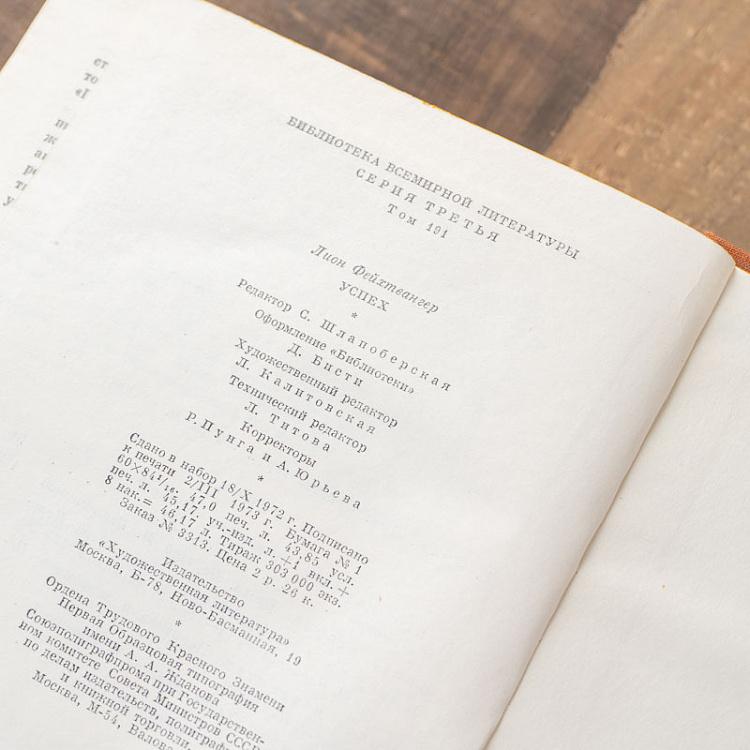 ст
то
«I
ж
у
БИБЛИОТЕКА ВСЕМИРНОЙ ЛИТЕРАТУРЫ
СЕРИЯ ТРЕТЬЯ
Том 191
Лион Фейхтвангер
УСПЕХ
*
Редактор С. Шлапоберская
Оформление «Библиотеки»
Д. Бисти
Художественный редактор
Л. Калитовская
Технический редактор
Л. Титова
Корректоры
Р. Пунга и А. Юрьева
*
Сдано в набор 18/X 1972 г. Подписано
к печати 2/III 1973 г. Бумага № 1
60×84 1/16. 47,0 печ. л. 43,85 усл.
печ. л. 45,17. уч.-изд. л. +1 вкл. +
8 нак.= 46,17 л. Тираж 303 000 экз.
Заказ № 3313. Цена 2 р. 26 к.
Издательство
«Художественная литература»
Москва, Б-78, Ново-Басманная, 19
*
Ордена Трудового Красного Знамени
Первая Образцовая типография
имени А. А. Жданова
Союзполиграфпрома при Государствен-
ном комитете Совета Министров СССР
по делам издательств, полиграф
и книжной торговли.
Москва, М-54, Валова